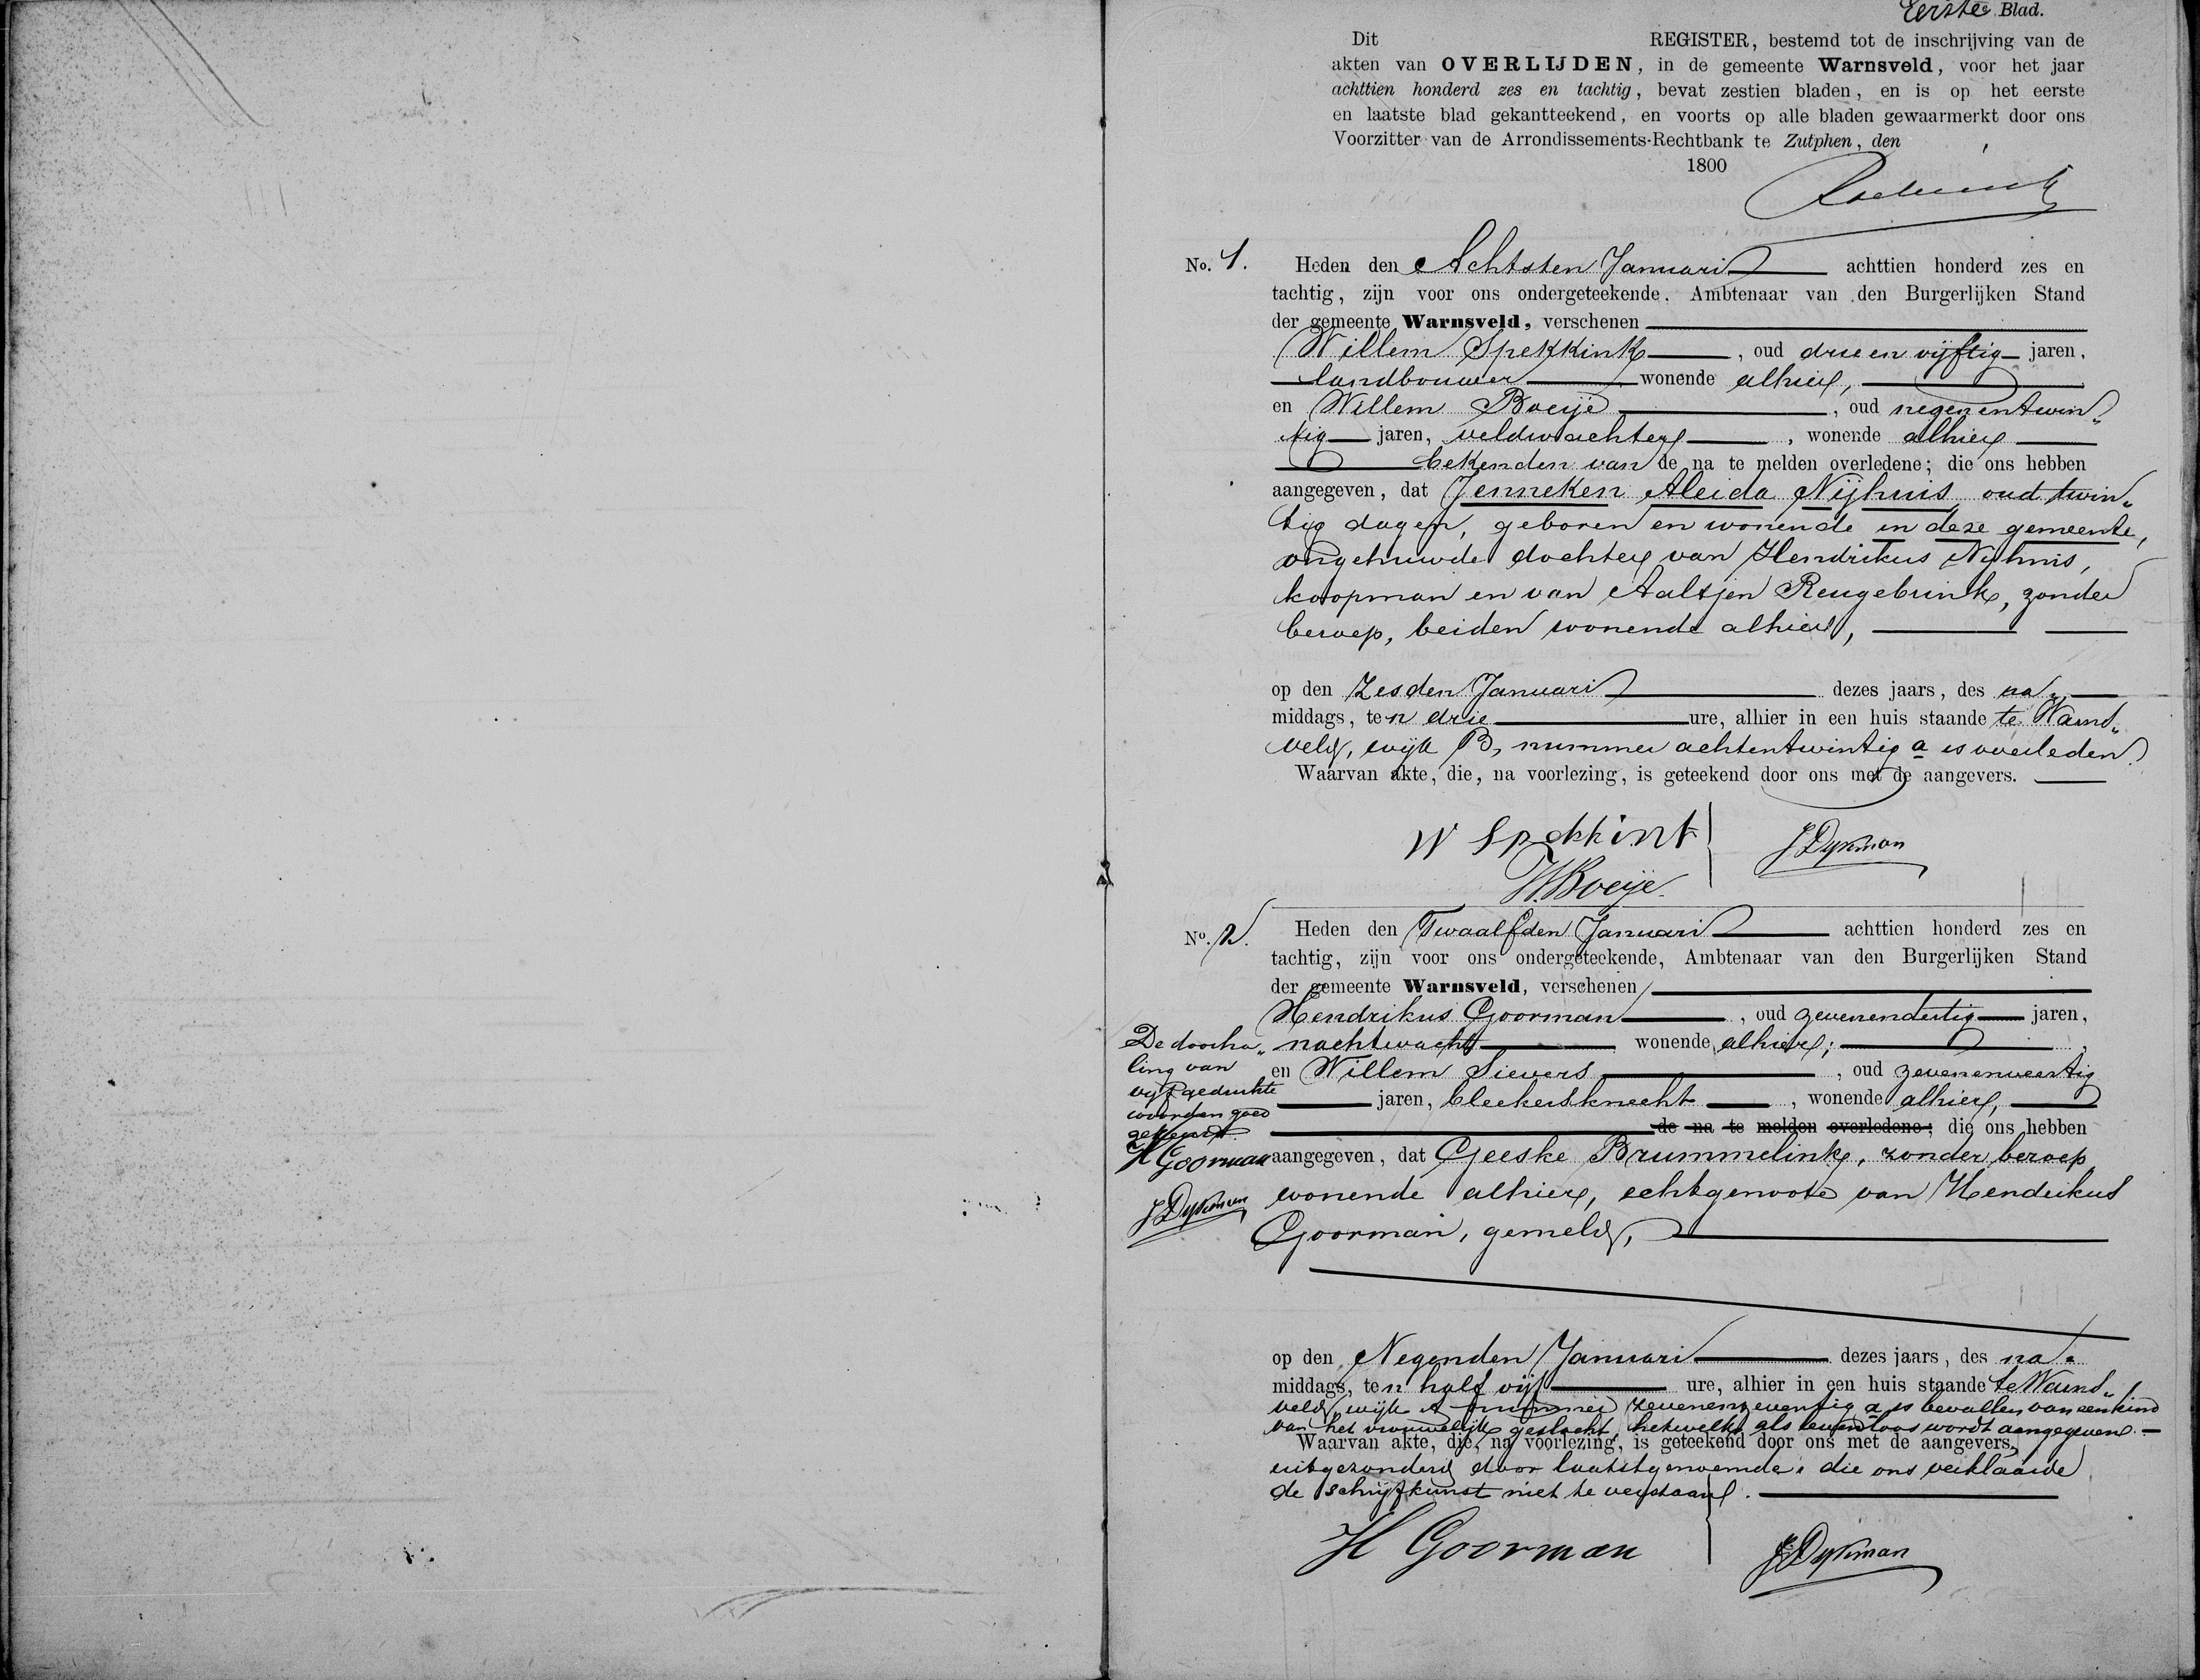 Eerste Blad.
Dit REGISTER, bestemd tot de inschrijving van de
akten van OVERLIJDEN, in de gemeente Warnsveld, voor het jaar
achttien honderd zes en tachtig, bevat zestien bladen, en is op het eerste
en laatste blad gekantteekend, en voorts op alle bladen gewaarmerkt door ons
Voorzitter van de Arrondissements-Rechtbank te Zutphen, den
1800
No. 1. Heden den Achtsten Januari achttien honderd zes en
tachtig, zijn voor ons ondergeteekende, Ambtenaar van den Burgerlijken Stand
der gemeente Warnsveld, verschenen
Willem Spekkink, oud drie en vijftig jaren,
landbouwer wonende alhier,
en Willem Boeije, oud negenentwin„
tig jaren, veldwachter, wonende alhier
bekenden van de na te melden overledene; die ons hebben
aangegeven, dat Jenneken Aleida Nijhuis, oud twin„
tig dagen, geboren en wonende in deze gemeente,
ongehuwde dochter van Hendrikus Nijhuis,
koopman en van Aaltjen Reugebrink, zonder
beroep, beiden wonende alhier,
op den Zesden Januari dezes jaars, des na„
middags, ten drie ure, alhier in een huis staande te Warns„
veld, wijk B, nummer achtentwintig a is overleden.
Waarvan akte, die, na voorlezing, is geteekend door ons met de aangevers.
W Spekkink JDykman
W.Boeije.
No. 2. Heden den Twaalfden Januari achttien honderd zes en
tachtig, zijn voor ons ondergeteekende, Ambtenaar van den Burgerlijken Stand
der gemeente Warnsveld, verschenen
Hendrikus Goorman, oud zevenendertig jaren,
nachtwacht wonende alhier,
en Willem Sievers, oud zevenenveertig
jaren, bleekersknecht, wonende alhier,
de na te melden overledene; die ons hebben
aangegeven, dat Geeske Brummelink, zonder beroep
wonende alhier, echtgenoote van Hendrikus
Goorman, gemeld,
De doorha„
ling van
vijf gedrukte
woorden goed
gekeurd.
H Goorman
JDykman
op den Negenden Januari dezes jaars, des na„
middags, ten half vijf ure, alhier in een huis staande te Warns„
veld, wijk A nummer zevenenzeventig a is bevallen van een kind
van het vrouwelijk geslacht, hetwelk als levenloos wordt aangegeven.
Waarvan akte, die, na voorlezing, is geteekend door ons met de aangevers,
uitgezonderd door laatstgenoemde, die ons verklaarde
de schrijfkunst niet te verstaan.
H Goorman JDykman